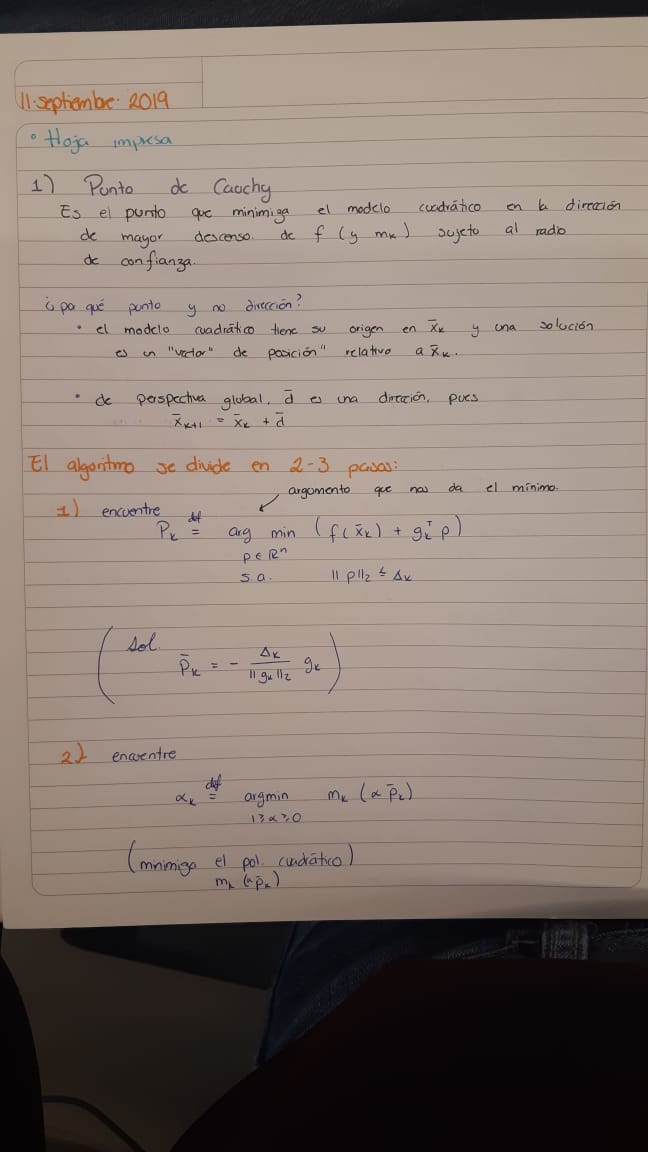 11.septiembre.2019
• Hoja impresa
1) Punto de Cauchy
Es el punto que minimiza el modelo cuadrático en la dirección
de mayor descenso. de f (y mₖ) sujeto al radio
de confianza.
¿por qué punto y no dirección?
• el modelo cuadrático tiene su origen en x̄ₖ y una solución
es un "vector" de posición" relativo a x̄ₖ.
• de perspectiva global, d̄ es una dirección, pues
x̄ₖ₊₁ = x̄ₖ + d̄
El algoritmo se divide en 2-3 pasos:
argomento que nos da el mínimo.
1) encuentre
Pₖ ≝ arg min (f(x̄ₖ) + gₖᵀ p)
p ∈ ℝⁿ
s.a. || p ||₂ ≤ Δₖ
(sol.
p̄ₖ = - Δₖ / || gₖ ||₂ gₖ)
2) encuentre
αₖ ≝ argmin mₖ (α p̄ₖ)
1 ≥ α ≥ 0
(mnimiga el pol. cuadrático)
mₖ (α p̄ₖ)